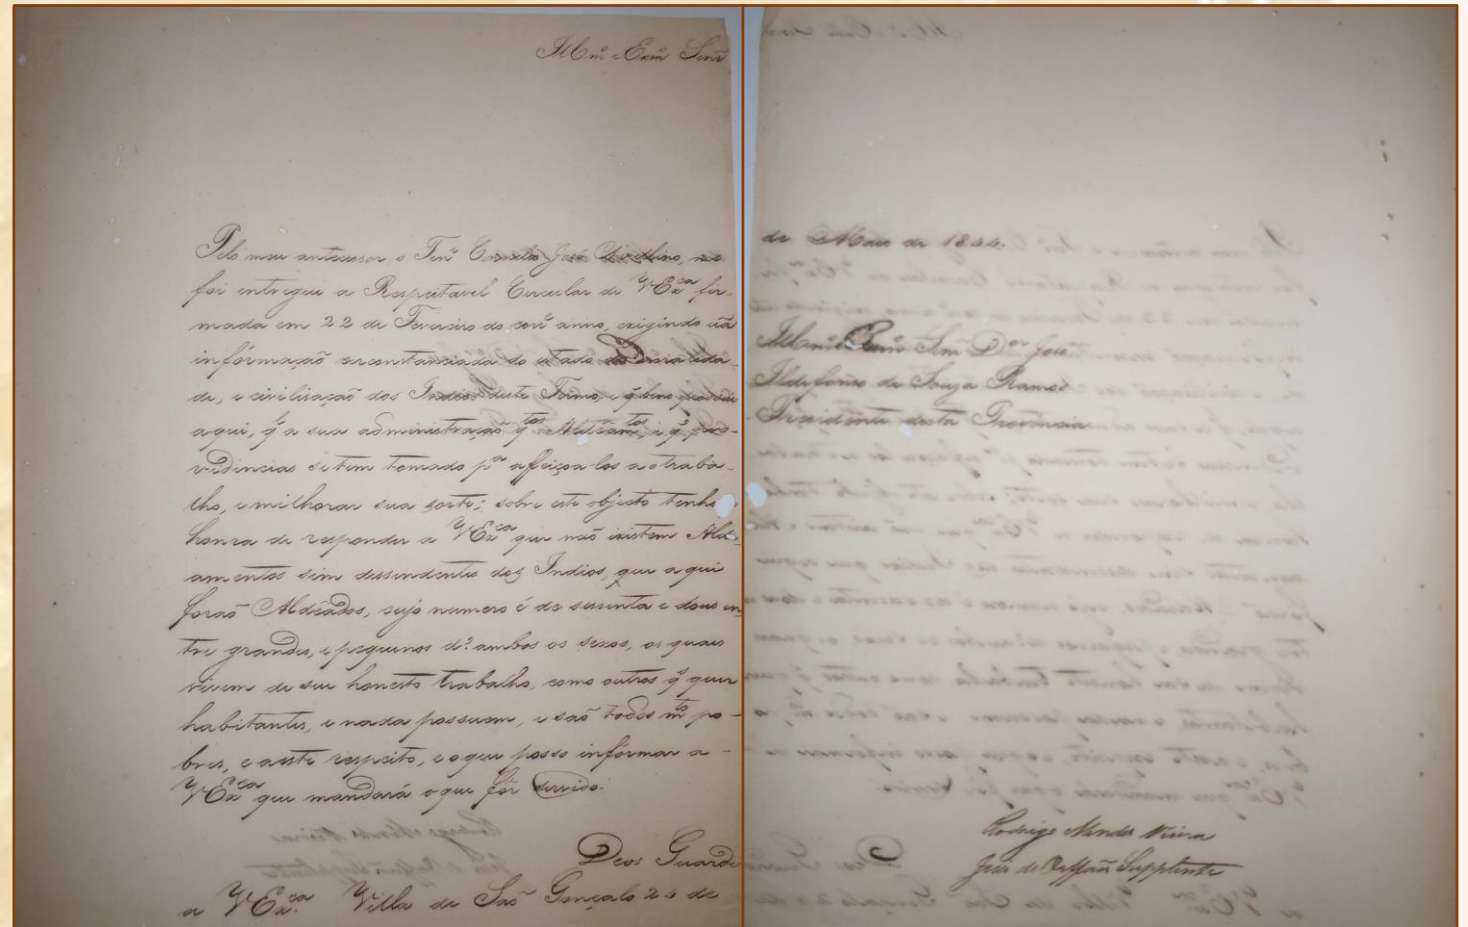 Illmº e Exmº Senr
Pelo meu antecessor o Tenº Cornelio José Avellino, me
foi entregue a Respeitavel Circular de VExca fir-
mada em 22 de Fevereiro do corrº anno, exigindo uã
informação circonstanciada do estado da Moralida-
de, e civilisação dos Indios deste Termo, e q bens possuem
aqui, q̃ a sua administração qtos Aldeamtos, e q̃ pro-
videncias se tem tomado pª affeiçoa-los ao traba-
lho, e milhorar sua sorte; sobre este objecto tenho
honra de responder a VExca que não existem Alde-
amentos sim dessendentes dos Indios, que aqui
forão Aldeados, cujo numero é de sessenta e dous en-
tre grandes, e pequenos d'ambos os sexos, os quais
vivem de seu honesto trabalho, como outros q̃ quer
habitantes, e nada possuem, e são todos mto po-
bres, e aeste respeito, e oque posso informar a
VExca que mandará oque fôr servido.
Deos Guarde
a VExca. Villa de São Gonçalo 24 de
de Maio de 1844.
Illmº e Exmº Senr Dor José
Ildefonso de Souza Ramos
Presidente desta Provincia
Rodrigo Mendes Vieira
Juis de Orffãõs Supplente